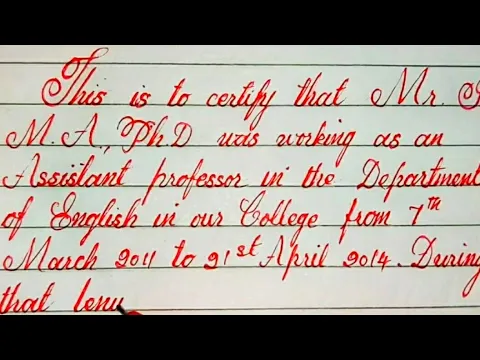 This is to certify that Mr.
M.A., Ph.D was working as an
Assistant professor in the Department
of English in our College from 7th
March 2011 to 21st April 2014. During
that tenu